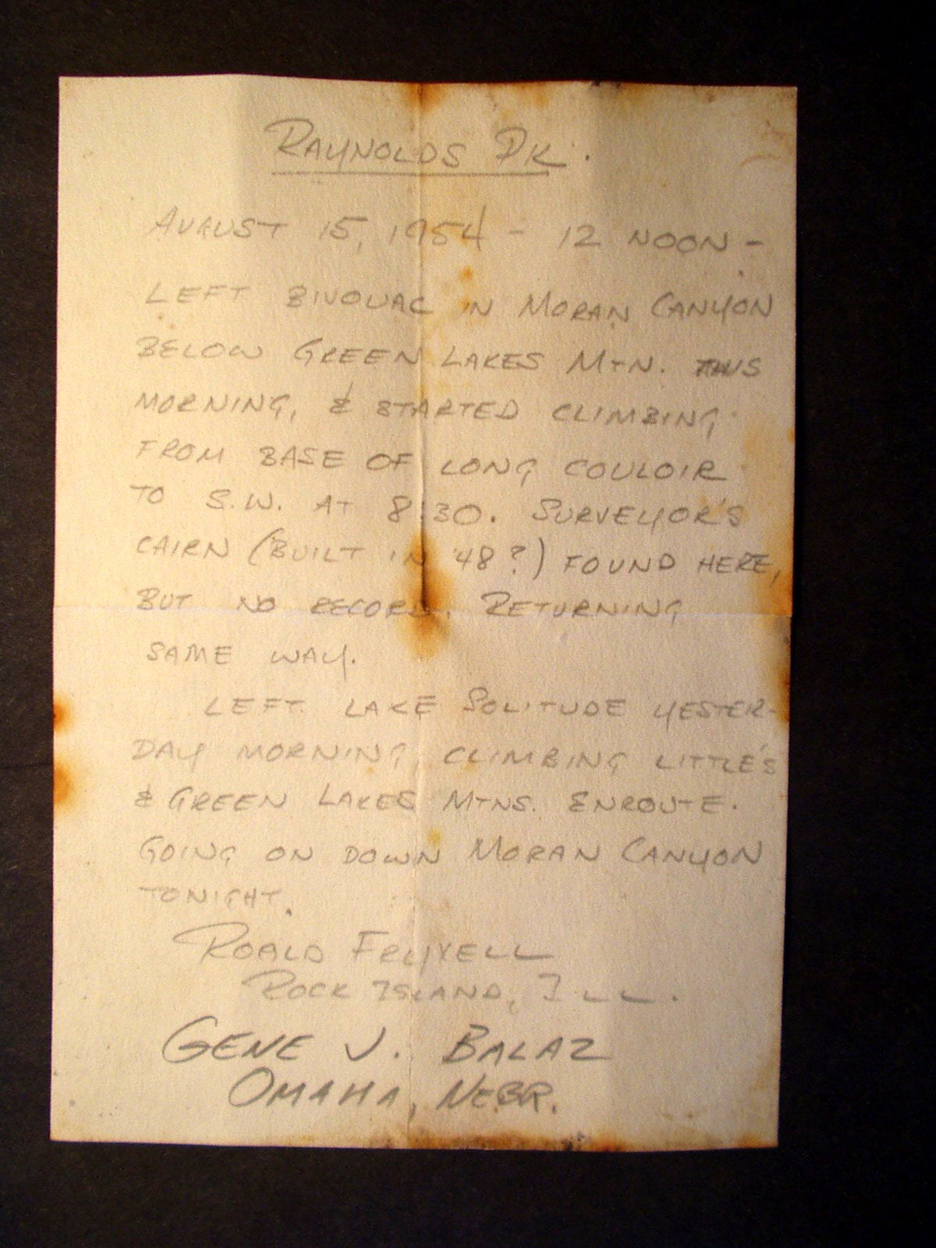 RAYNOLDS PK.
AUGUST 15, 1954 - 12 NOON -
LEFT BIVOUAC IN MORAN CANYON
BELOW GREEN LAKES MTN. THIS
MORNING, & STARTED CLIMBING
FROM BASE OF LONG COULOIR
TO S.W. AT 8:30. SURVEYOR'S
CAIRN (BUILT IN '48?) FOUND HERE,
BUT NO RECORD. RETURNING
SAME WAY.
LEFT LAKE SOLITUDE YESTER-
DAY MORNING, CLIMBING LITTLE'S
& GREEN LAKES MTNS. ENROUTE.
GOING ON DOWN MORAN CANYON
TONIGHT.
ROALD FRYXELL
ROCK ISLAND, ILL.
GENE J. BALAZ
OMAHA, NEBR.